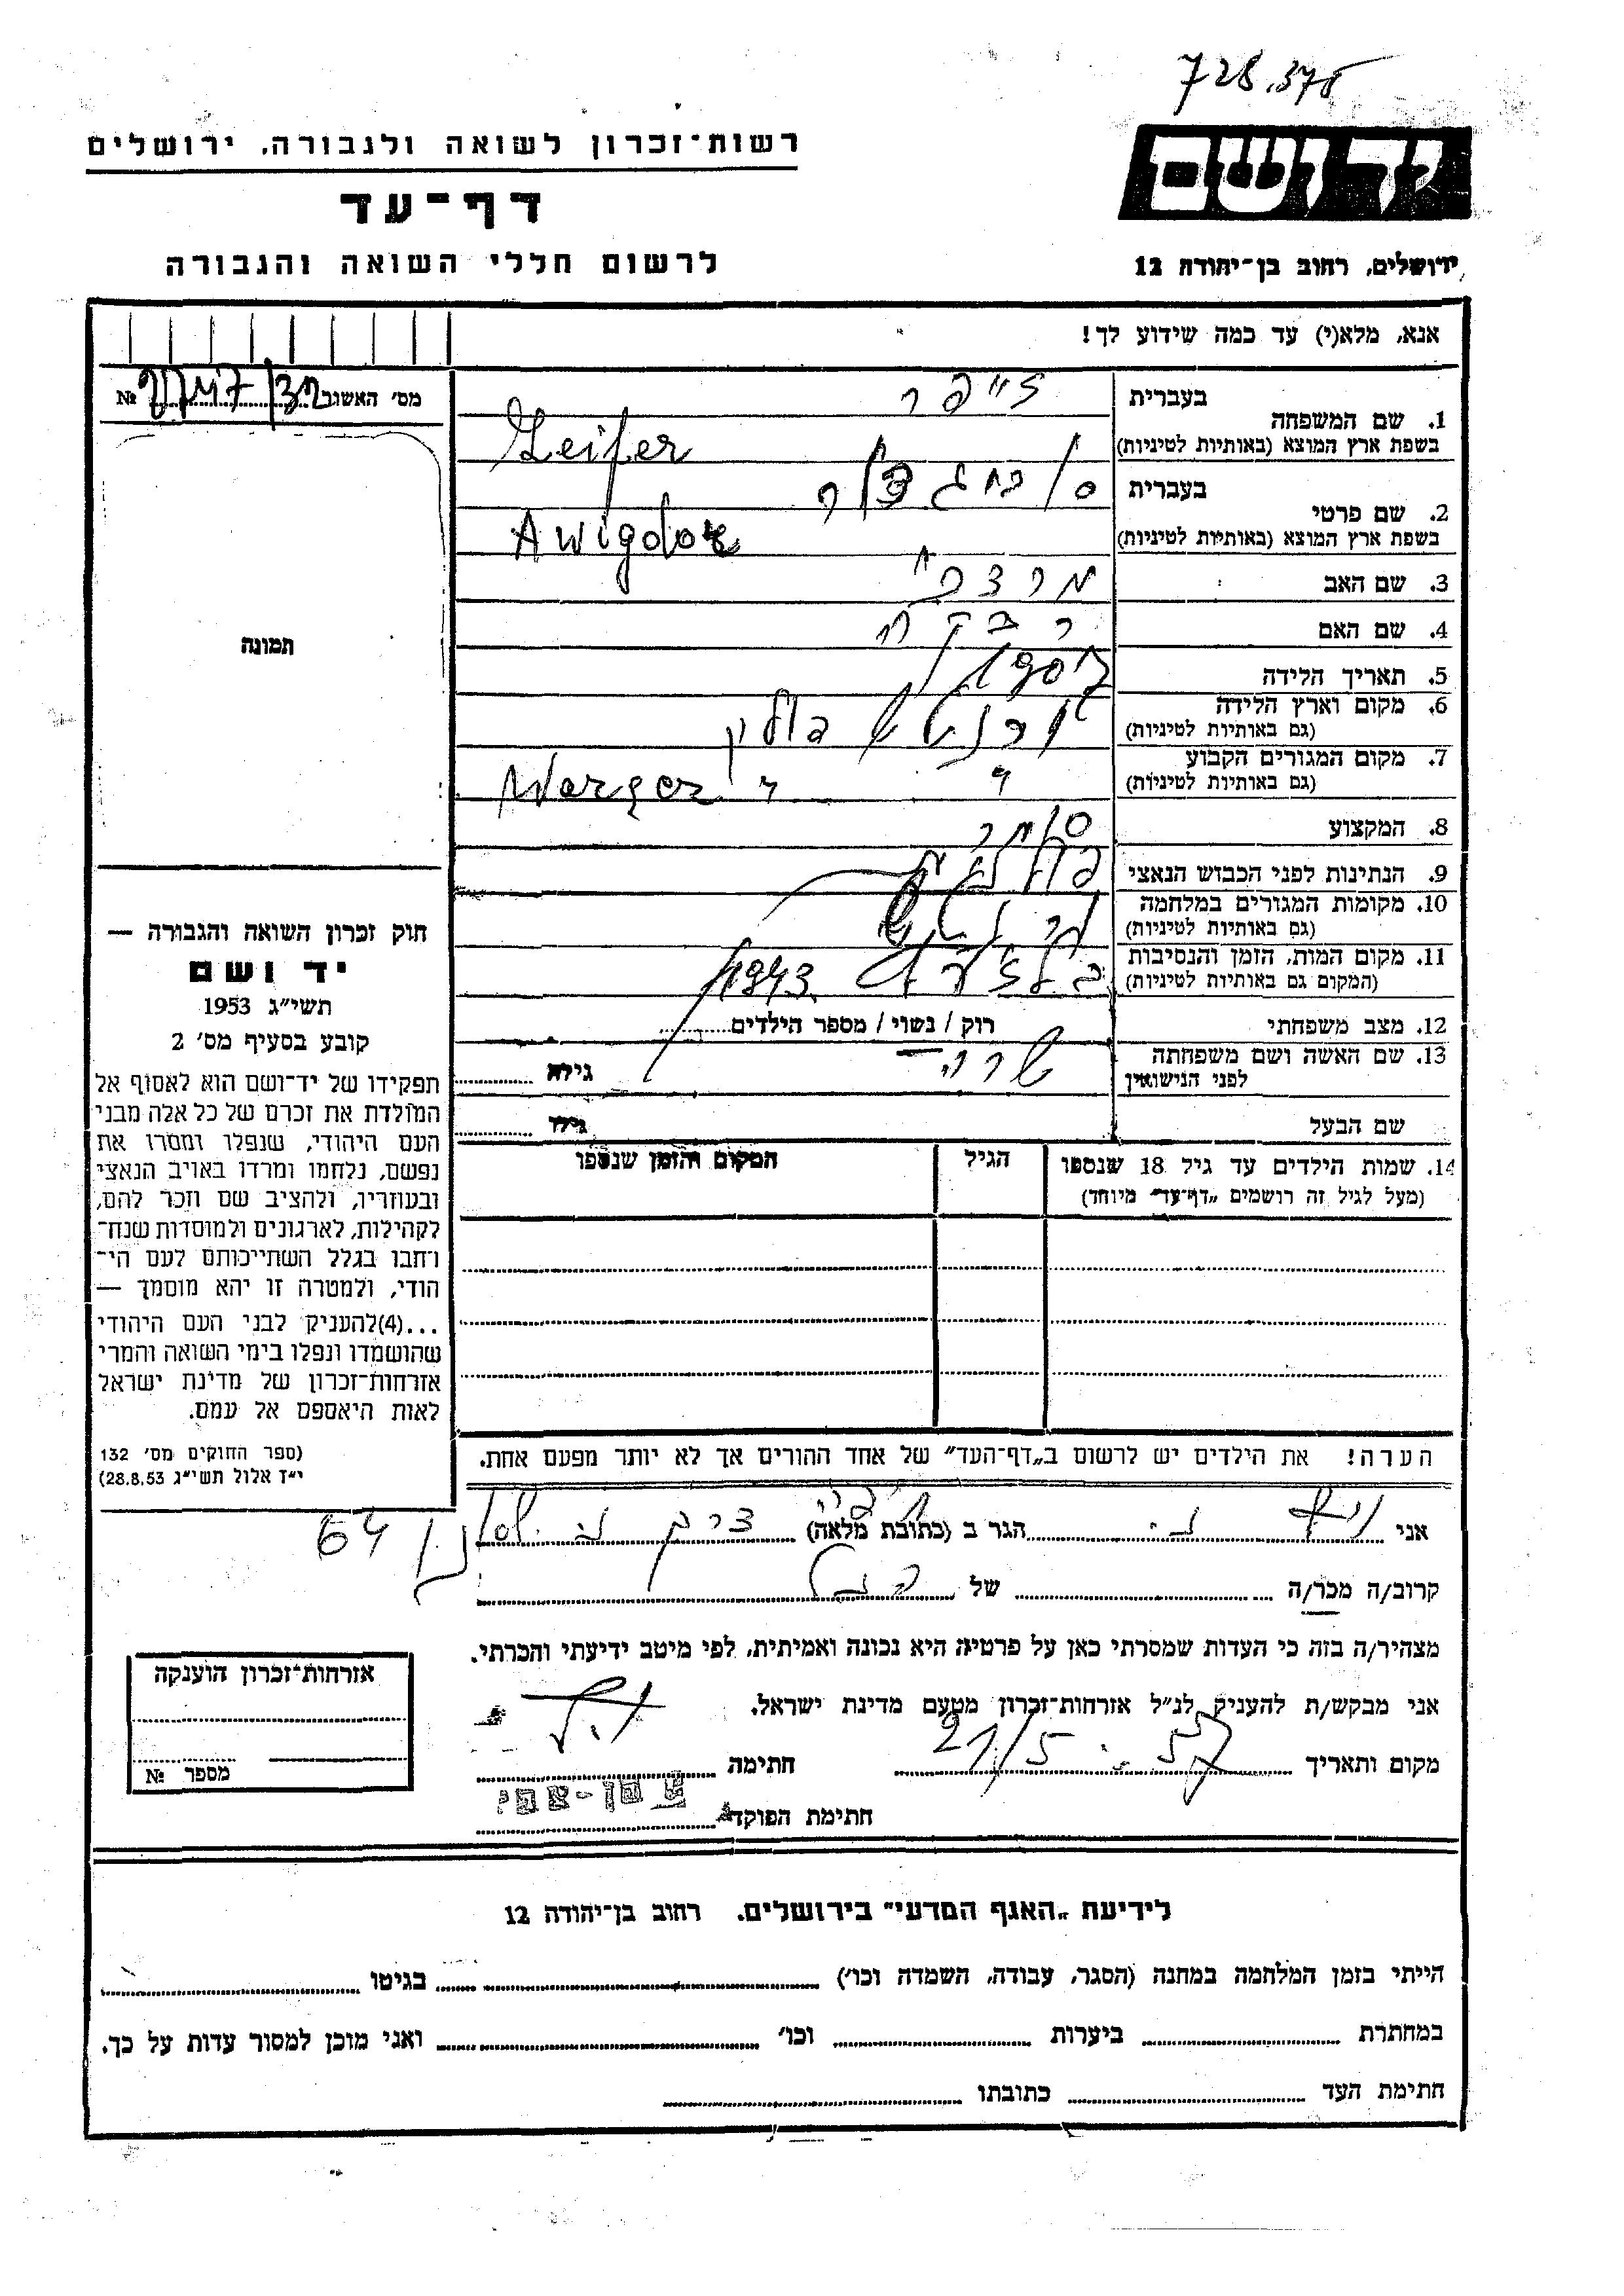 728.375
יד ושם
רשות־זכרון לשואה ולגבורה, ירושלים
דף־עד
לרשום חללי השואה והגבורה
ירושלים, רחוב בן־יהודה 12
אנא, מלא(י) עד כמה שידוע לך!
מס׳ האשור №
1. שם המשפחה
בעברית
לייפר
בשפת ארץ המוצא (באותיות לטיניות)
Leifer
2. שם פרטי
בעברית
בשפת ארץ המוצא (באותיות לטיניות)
Awigdor
3. שם האב
מרדכי
4. שם האם
רבקה
5. תאריך הלידה
6. מקום וארץ הלידה
(גם באותיות לטיניות)
פולין
7. מקום המגורים הקבוע
(גם באותיות לטיניות)
8. המקצוע
סוחר
9. הנתינות לפני הכבוש הנאצי
פולנית
10. מקומות המגורים במלחמה
(גם באותיות לטיניות)
11. מקום המות, הזמן והנסיבות
(המקום גם באותיות לטיניות)
1943
12. מצב משפחתי
רוק / נשוי / מספר הילדים
13. שם האשה ושם משפחתה
לפני הנישואין
שרה
גילה
שם הבעל
גילו
14. שמות הילדים עד גיל 18 שנספו
(מעל לגיל זה רושמים „דף־עד" מיוחד)
הגיל
המקום והזמן שנספו
תמונה
חוק זכרון השואה והגבורה —
יד ושם
תשי״ג 1953
קובע בסעיף מס׳ 2
תפקידו של יד־ושם הוא לאסוף אל
המולדת את זכרם של כל אלה מבני
העם היהודי, שנפלו ומסרו את
נפשם, נלחמו ומרדו באויב הנאצי
ובעוזריו, ולהציב שם וזכר להם,
לקהילות, לארגונים ולמוסדות שנח־
רחבו בגלל השתייכותם לעם הי־
הודי, ולמטרה זו יהא מוסמך —
...(4)להעניק לבני העם היהודי
שהושמדו ונפלו בימי השואה והמרי
אזרחות־זכרון של מדינת ישראל
לאות היאספם אל עמם.
(ספר החוקים מס׳ 132
י״ז אלול תשי״ג 28.8.53)
הערה! את הילדים יש לרשום ב„דף־העד" של אחד ההורים אך לא יותר מפעם אחת.
אני הגר ב (כתובת מלאה) 64
קרוב/ה מכר/ה של
מצהיר/ה בזה כי העדות שמסרתי כאן על פרטיה היא נכונה ואמיתית, לפי מיטב ידיעתי והכרתי.
אני מבקש/ת להעניק לנ״ל אזרחות־זכרון מטעם מדינת ישראל.
מקום ותאריך 21/5 חתימה
חתימת הפוקד
אזרחות־זכרון הוענקה
מספר №
לידיעת „האגף המדעי" בירושלים. רחוב בן־יהודה 12
הייתי בזמן המלחמה במחנה (הסגר, עבודה, השמדה וכו׳) בגיטו
במחתרת ביערות וכו׳ ואני מוכן למסור עדות על כך.
חתימת העד כתובתו